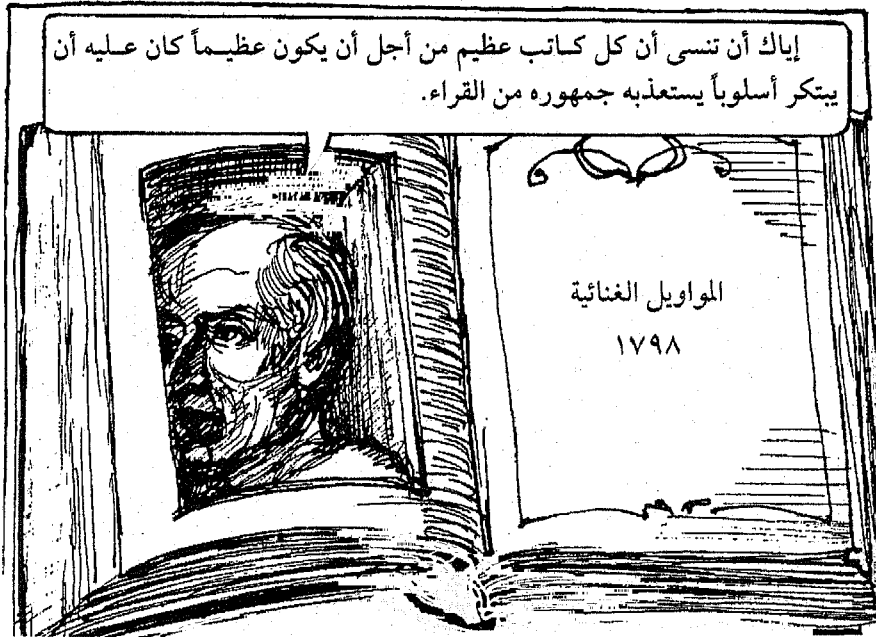 إياك أن تنسى أن كل كاتب عظيم من أجل أن يكون عظيماً كان عليه أن
يبتكر أسلوباً يستعذبه جمهوره من القراء.
المواويل الغنائية
١٧٩٨